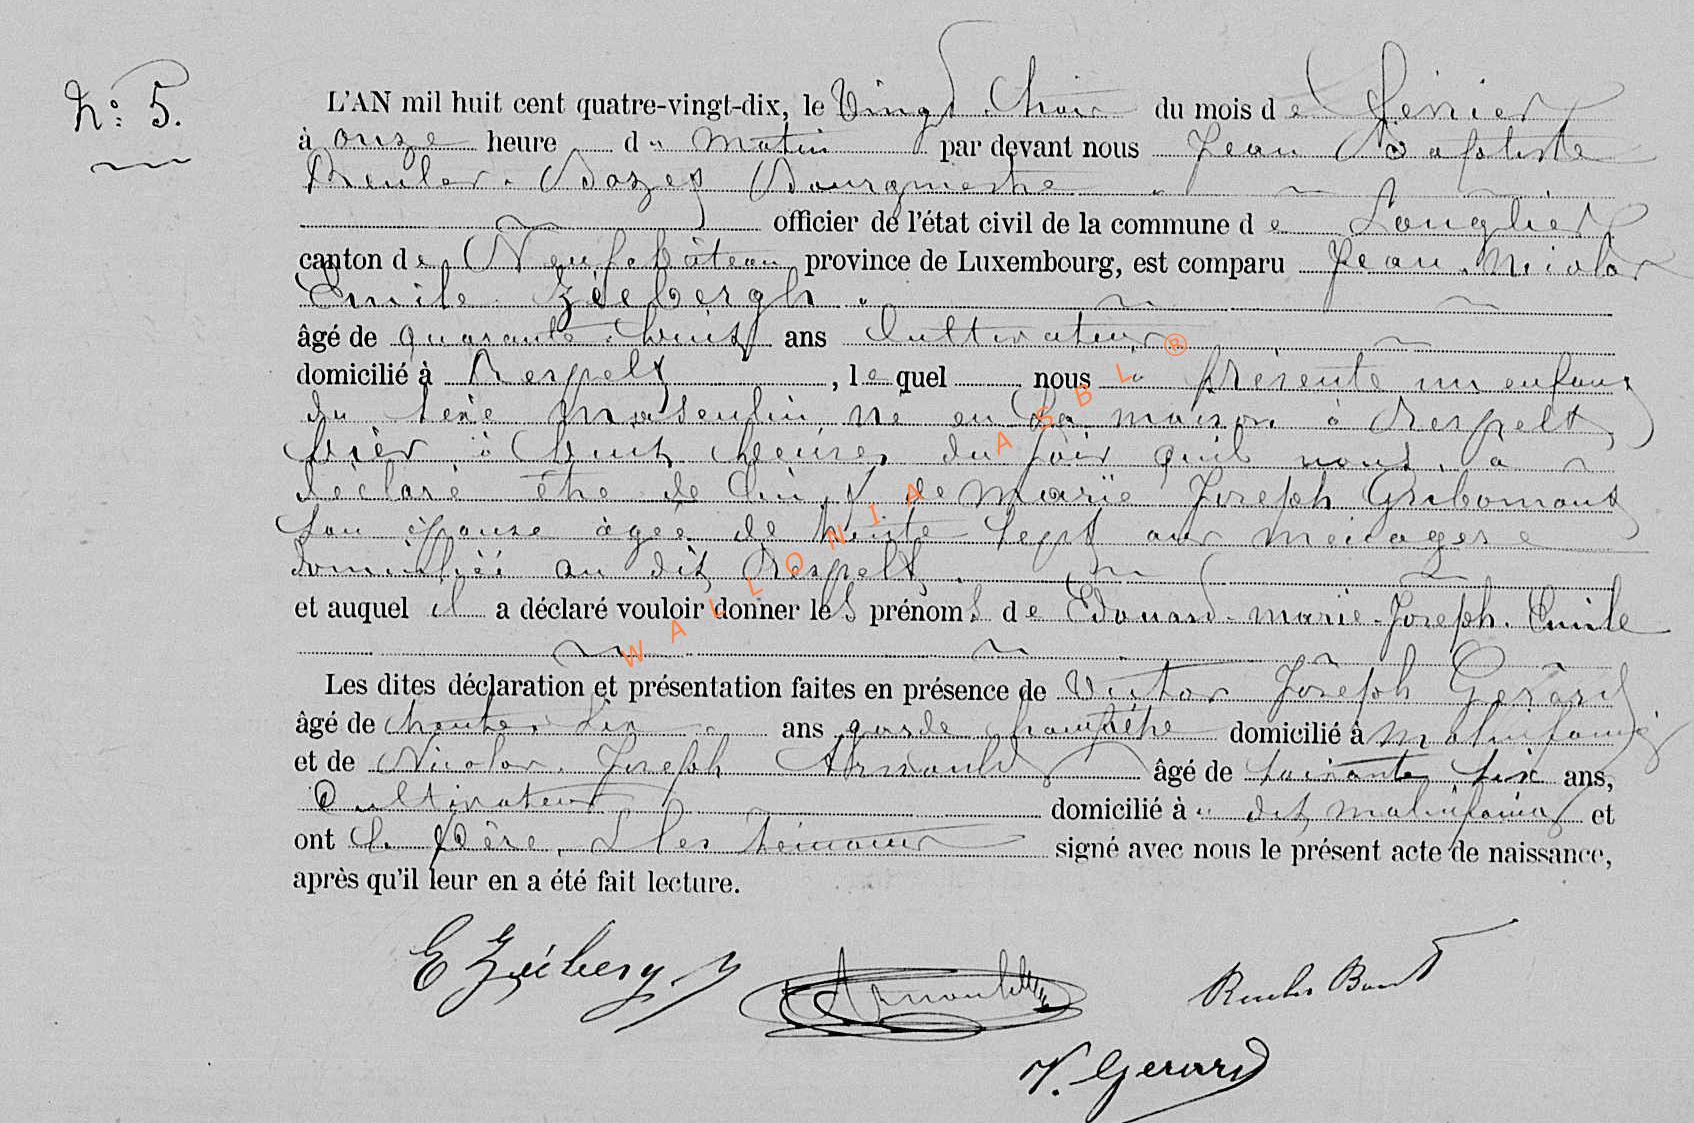 N° 5.
L'AN mil huit cent quatre-vingt-dix, le Vingt trois du mois de Février
à onze heure du matin par devant nous Jean Baptiste
Reuler Bozet Bourgmestre
officier de l'état civil de la commune de Longlier
canton de Neufchâteau province de Luxembourg, est comparu Jean Nicolas
Emile Zéebergh
âgé de quarante huit ans Cultivateur
domicilié à Respelt, lequel nous a présenté un enfant
du sexe masculin, né en sa maison à Respelt
hier à huit heures du soir qu'il nous a
déclaré être de lui, & de Marie Joseph Gribomont
son épouse âgée de trente sept ans ménagère
domiciliée au dit Respelt.
et auquel il a déclaré vouloir donner les prénoms de Edouard-Marie-Joseph. Emile
Les dites déclaration et présentation faites en présence de Victor Joseph Gérard
âgé de trente six ans garde champêtre domicilié à Molinfaing
et de Nicolas Joseph Arnould âgé de soixante six ans,
Cultivateur domicilié à dit Molinfaing et
ont le Père, & les témoins signé avec nous le présent acte de naissance,
après qu'il leur en a été fait lecture.
E Zéebergh
Arnould
V. Gerard
WALLONIA ASBL ®